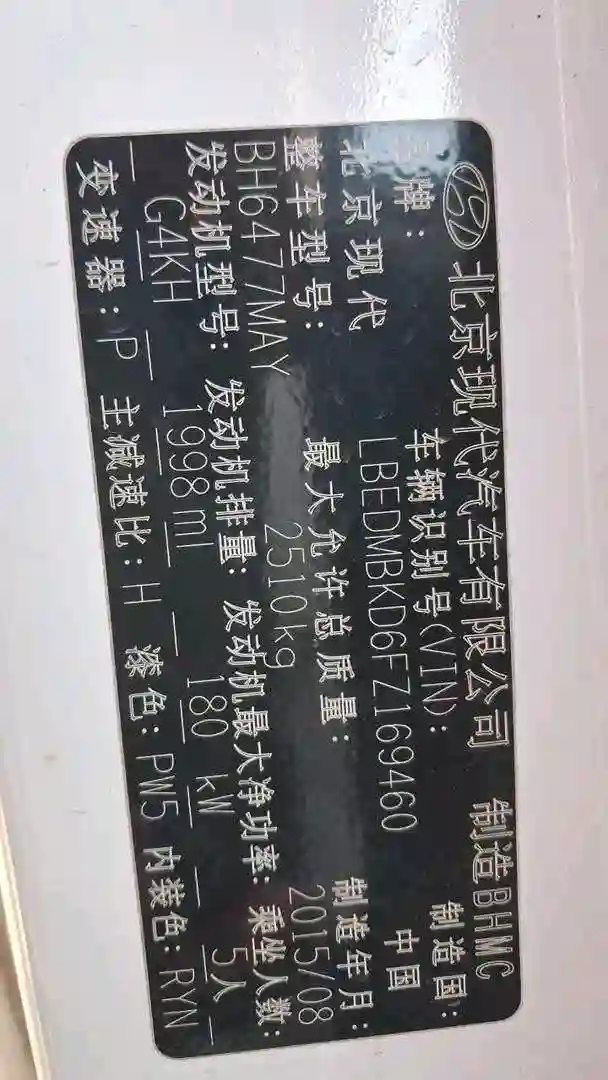 北京现代汽车有限公司 制造BHMC
品牌: 车辆识别号(VIN): 制造国:
北京现代 LBEDMBKD6FZ169460 中国
整车型号: 最大允许总质量: 制造年月:
BH6477MAY 2510kg 2015/08
发动机型号: 发动机排量: 发动机最大净功率: 乘坐人数:
G4KH 1998ml 180 kW 5人
变速器: P 主减速比: H 漆色: PW5 内装色: RYN